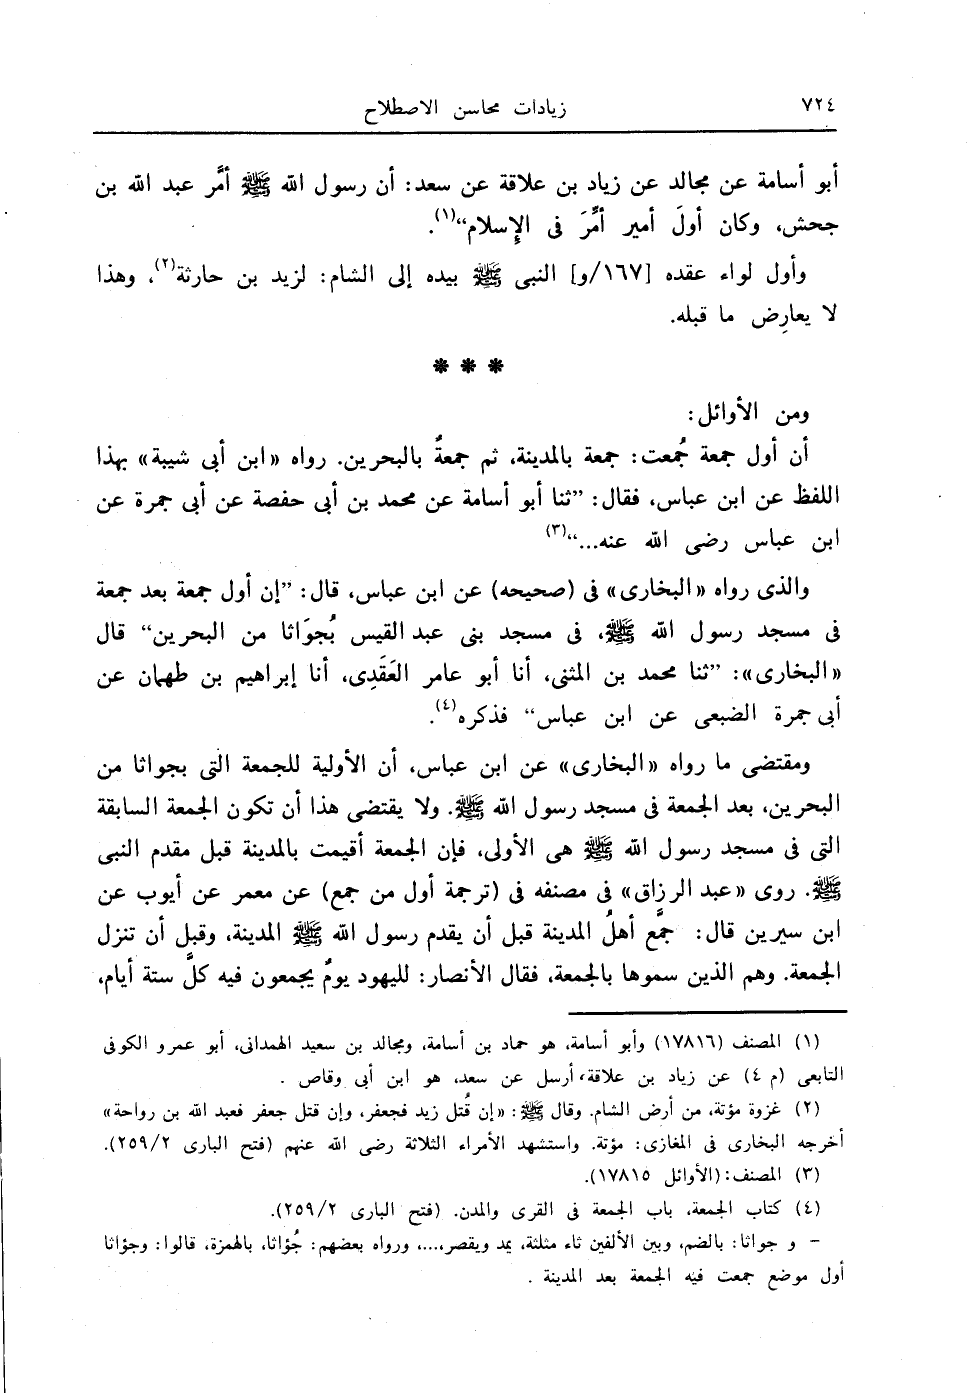 ٧٢٤
زيادات محاسن الاصطلاح
أبو أسامة عن مجالد عن زياد بن علاقة عن سعد: أن رسول الله ﷺ أمَّر عبد الله بن
جحش، وكان أولَ أمير أمِّرَ فى الإِسلام“(١).
وأول لواء عقده [١٦٧/و] النبى ﷺ بيده إلى الشام: لزيد بن حارثة(٢)، وهذا
لا يعارِض ما قبله.
* * *
ومن الأوائل:
أن أول جمعة جُمعت: جمعة بالمدينة، ثم جمعةٌ بالبحرين. رواه «ابن أبى شيبة» بهذا
اللفظ عن ابن عباس، فقال: ”ثنا أبو أسامة عن محمد بن أبى حفصة عن أبى جمرة عن
ابن عباس رضى الله عنه...“(٣)
والذى رواه «البخارى» فى (صحيحه) عن ابن عباس، قال: ”إن أول جمعة بعد جمعة
فى مسجد رسول الله ﷺ، فى مسجد بنى عبد القيس بُجوَاثا من البحرين“ قال
«البخارى»: ”ثنا محمد بن المثنى، أنا أبو عامر العَقَدِى، أنا إبراهيم بن طهمان عن
أبى جمرة الضبعى عن ابن عباس“ فذكره(٤).
ومقتضى ما رواه «البخارى» عن ابن عباس، أن الأولية للجمعة التى بجواثا من
البحرين، بعد الجمعة فى مسجد رسول الله ﷺ. ولا يقتضى هذا أن تكون الجمعة السابقة
التى فى مسجد رسول الله ﷺ هى الأولى، فإن الجمعة أقيمت بالمدينة قبل مقدم النبى
ﷺ. روى «عبد الرزاق» فى مصنفه فى (ترجمة أول من جمع) عن معمر عن أيوب عن
ابن سيرين قال: جمَّع أهلُ المدينة قبل أن يقدم رسول الله ﷺ المدينة، وقبل أن تنزل
الجمعة. وهم الذين سموها بالجمعة، فقال الأنصار: لليهود يومٌ يجمعون فيه كلَّ ستة أيام،
(١) المصنف (١٧٨١٦) وأبو أسامة، هو حماد بن أسامة، ومجالد بن سعيد الهمدانى، أبو عمرو الكوفى
التابعى (م ٤) عن زياد بن علاقة، أرسل عن سعد، هو ابن أبى وقاص .
(٢) غزوة مؤتة، من أرض الشام. وقال ﷺ: «إن قُتل زيد فجعفر، وإن قتل جعفر فعبد الله بن رواحة»
أخرجه البخارى فى المغازى: مؤتة. واستشهد الأمراء الثلاثة رضى الله عنهم (فتح البارى ٢٥٩/٢).
(٣) المصنف:(الأوائل ١٧٨١٥).
(٤) كتاب الجمعة، باب الجمعة فى القرى والمدن. (فتح البارى ٢٥٩/٢).
– و جواثا: بالضم، وبين الألفين ثاء مثلثة، يمد ويقصر،...، ورواه بعضهم: جُؤاثا، بالهمزة، قالوا: وجؤاثا
أول موضع جمعت فيه الجمعة بعد المدينة .